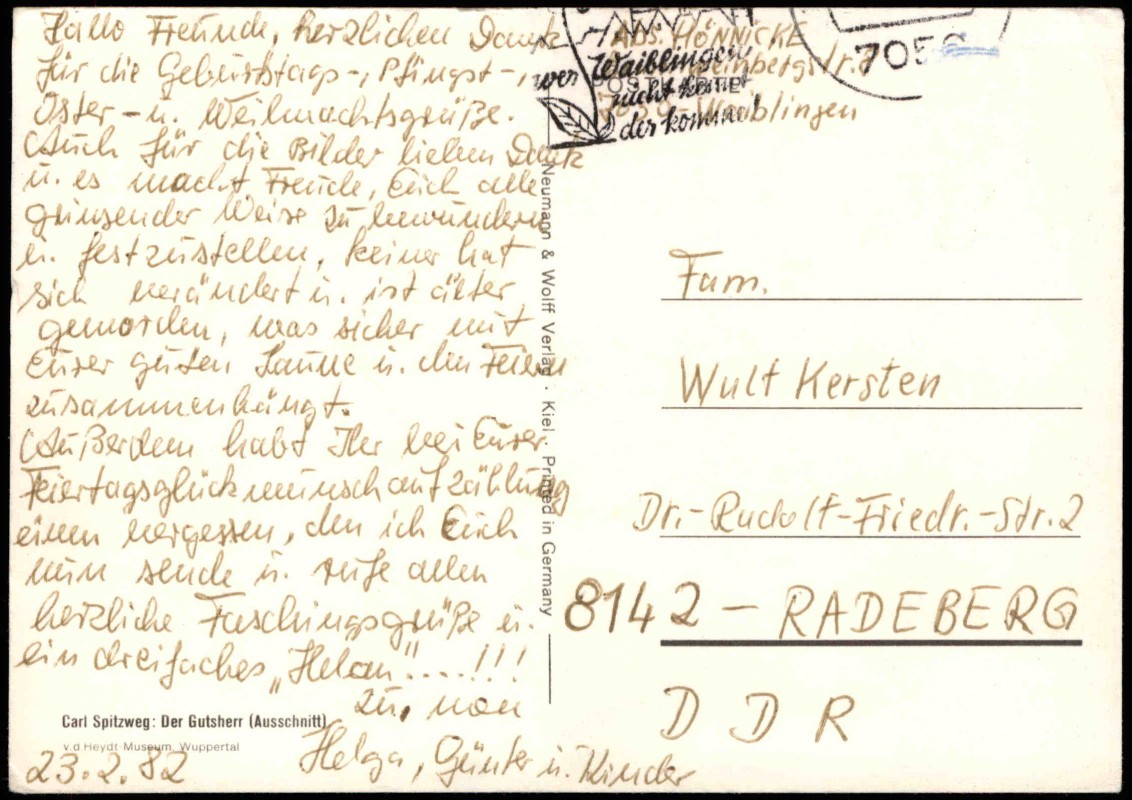 Hallo Freunde, herzlichen Dank
für die Geburtstags-, Pfingst-,
Oster- u. Weihnachtsgrüße.
Auch für die Bilder lieben Dank
u. es macht Freude, Euch alle
grinsender Weise zu bewundern
u. festzustellen, keiner hat
sich verändert u. ist älter
geworden, was sicher mit
Eurer guten Laune u. den Feiern
zusammenhängt.
Außerdem habt Ihr bei Eurer
Feiertagsglückwunschaufzählung
einen vergessen, den ich Euch
nun sende u. rufe allen
herzliche Faschingsgrüße u.
ein dreifaches „Helau"....!!!
zu, von
Helga, Günter u. Kinder
23.2.82
Carl Spitzweg: Der Gutsherr (Ausschnitt)
v.d.Heydt-Museum, Wuppertal
Neumann & Wolff Verlag · Kiel · Printed in Germany
Abs. HÖNNICKE
POSTKARTE
7050 - Waiblingen
wer Waiblingen
nicht kennt
der kommt
705
Fam.
Wult Kersten
Dr.-Rudolf-Friedr.-Str. 2
8142 - RADEBERG
D D R